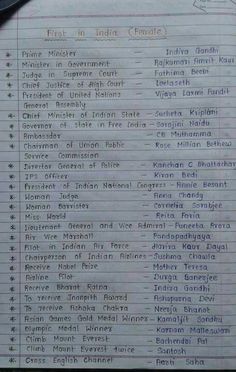 First in India (Female)
* Prime Minister - Indira Gandhi
* Minister in Government - Rajkumari Amrit Kaur
* Judge in Supreme Court - Fathima Beevi
* Chief Justice of High Court - Leelaseth
* President of United Nations - Vijaya Laxmi Pandit
General Assembly
* Chief Minister of Indian State - Sucheta Kriplani
* Governor of State in Free India - Sarojini Naidu
* Ambassdor - CB Muthamma
* Chairman of Union Public - Rose Millian Bethew
Service Commission
* Director General of Police - Kanchan C Bhattachar
* IPS Officer - Kiran Bedi
* President of Indian National Congress - Annie Besant
* Woman Judge - Anna Chandy
* Woman Barrister - Cornelia Sorabjee
* Miss World - Reita Faria
* Lieutenant General and Vice Admiral - Puneetha Arora
* Air Vice Marshall - Bandopadhyaya
* Pilot in Indian Air Force - Harita Kaur Dayal
* Chairperson of Indian Airlines - Sushma Chawla
* Receive Nobel Prize - Mother Teresa
* Airline Pilot - Durga Banerjee
* Receive Bharat Ratna - Indira Gandhi
* To receive Jnanpith Award - Ashapurna Devi
* To receive Ashoka Chakra - Neerja Bhanot
* Asian Games Gold Medal Winner - Kamaljit Sandhu
* Olympic Medal Winner - Karnam Malleswari
* Climb Mount Everest - Bachendri Pal
* Climb Mount Everest twice - Santosh
* Cross English Channel - Aarti Saha